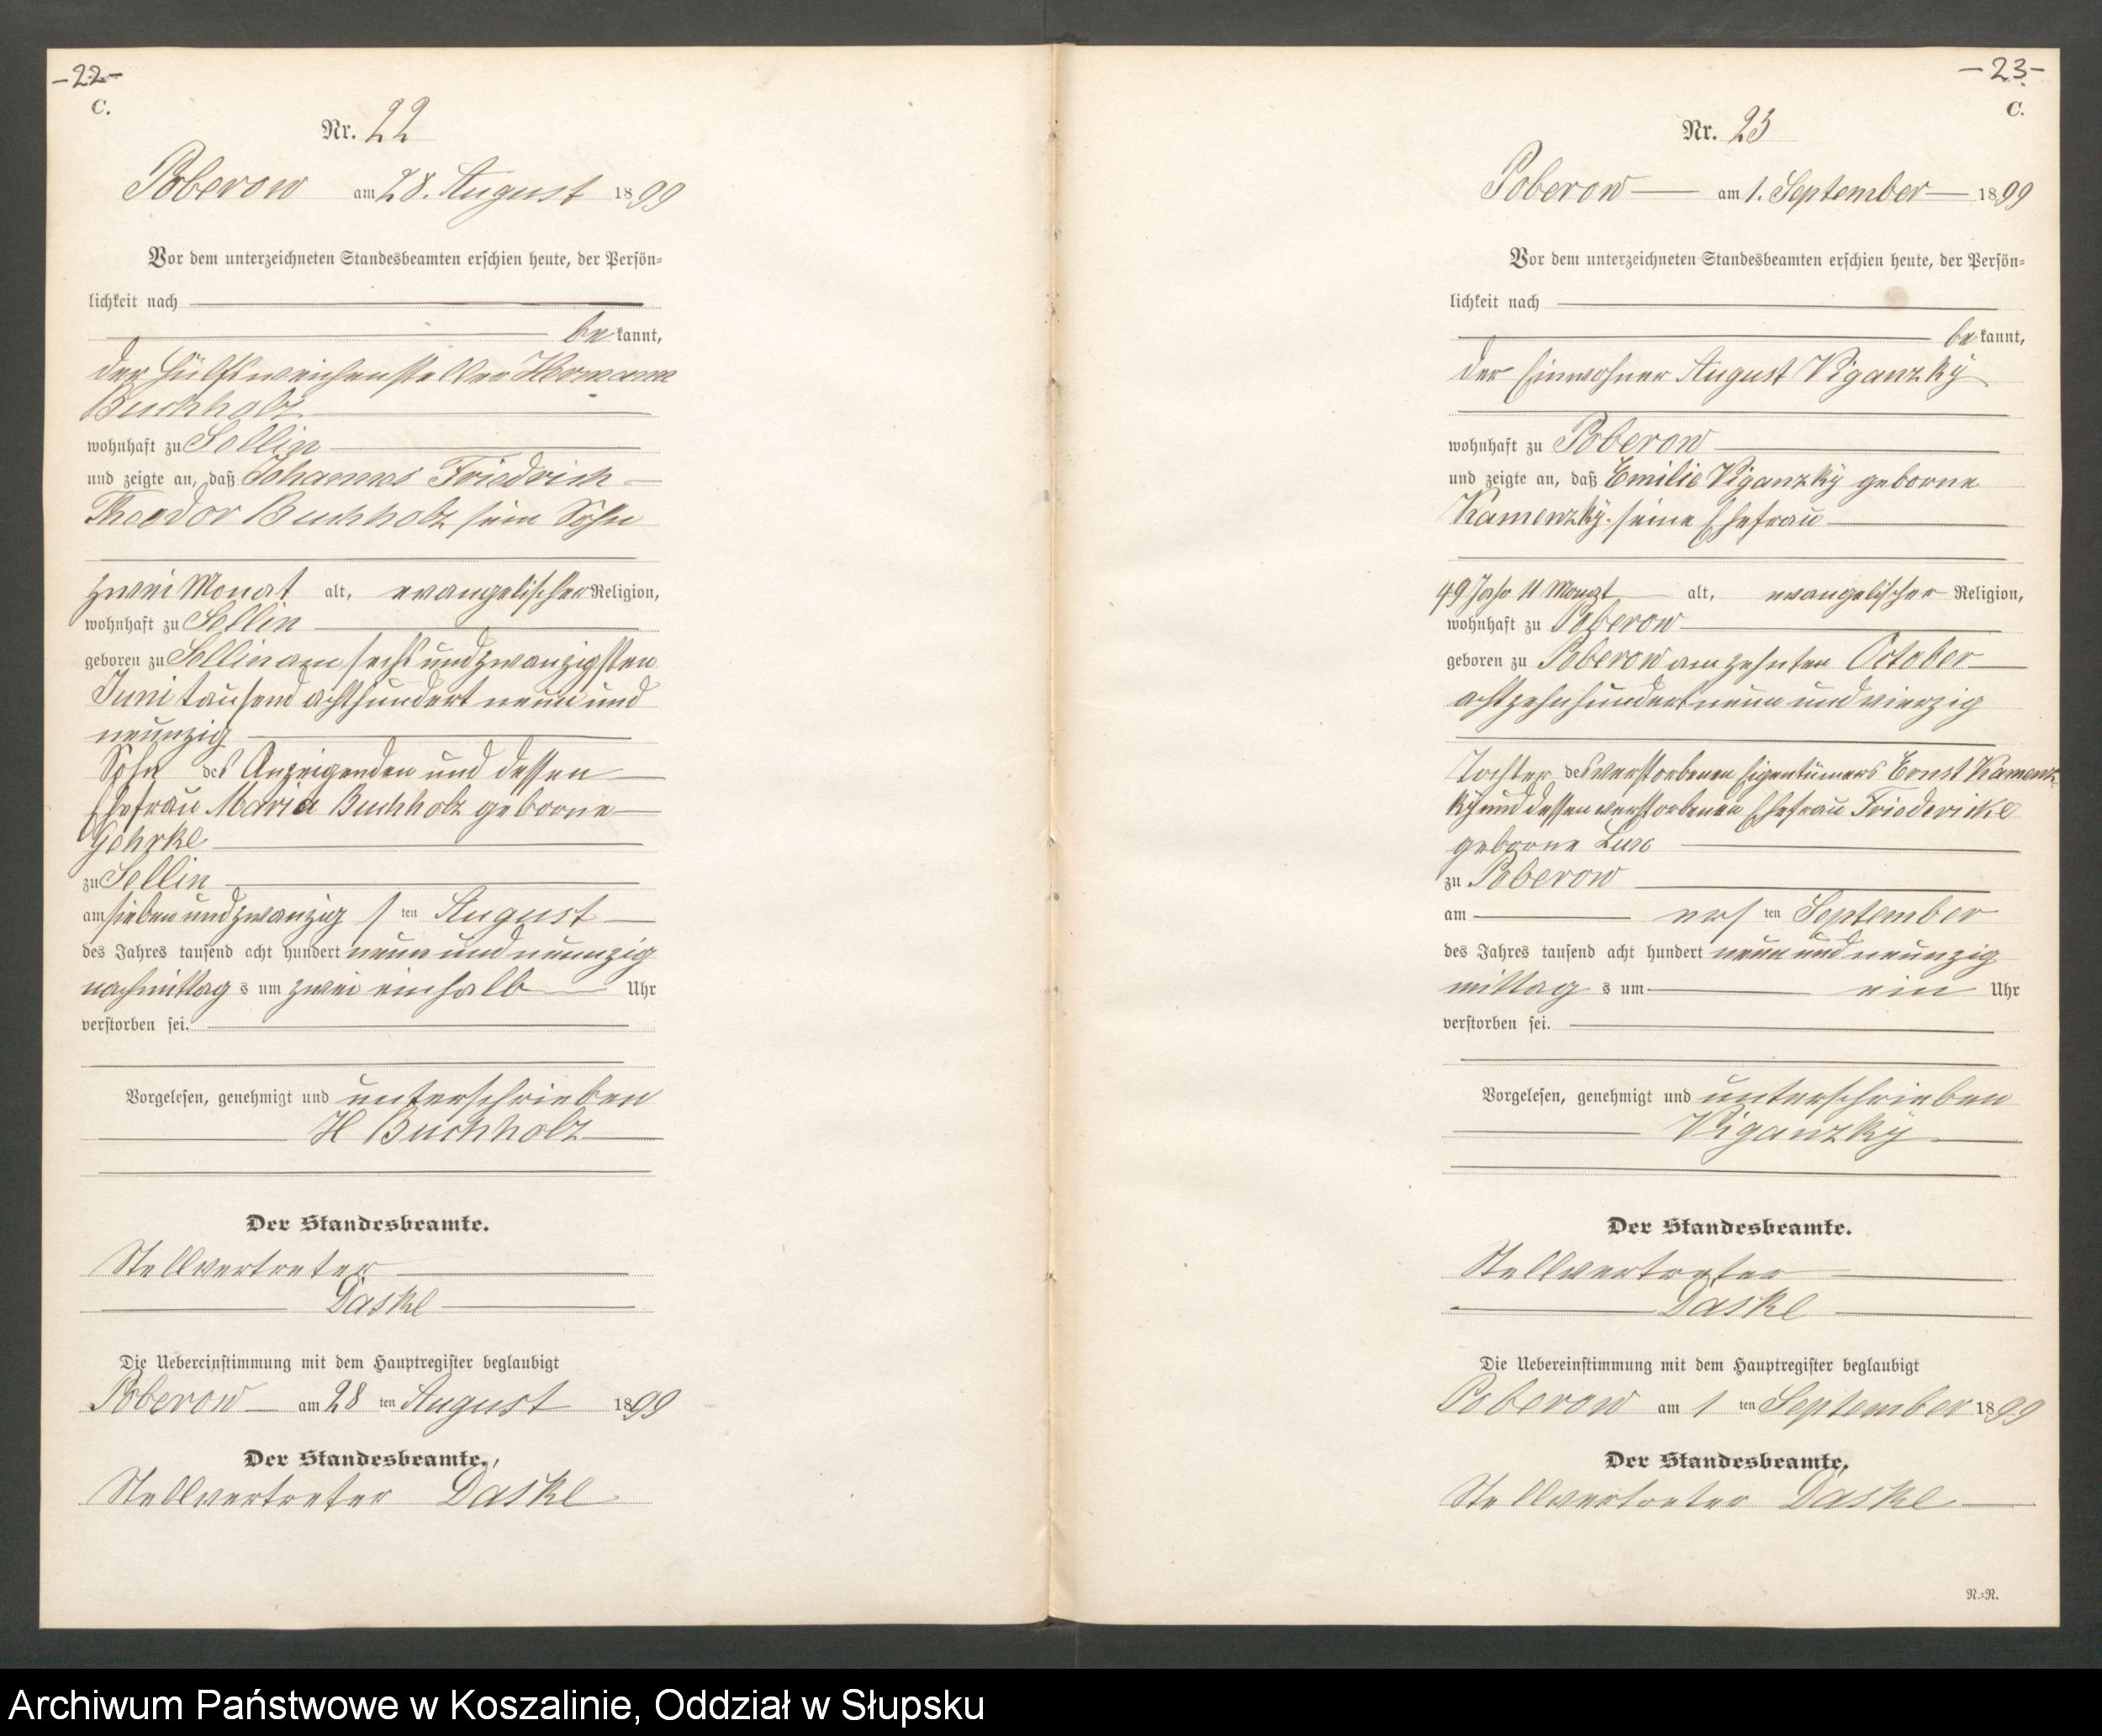 -22-
C.
Nr. 22
Poberow am 28. August 1899
Vor dem unterzeichneten Standesbeamten erschien heute, der Persön=
lichkeit nach
bekannt,
der Hülfsweichensteller Hermann
Buchholz
wohnhaft zu Sellin
und zeigte an, daß Johannes Friedrich
Theodor Buchholz sein Sohn
zwei Monat alt, evangelischer Religion,
wohnhaft zu Sellin
geboren zu Sellin am sechs und zwanzigsten
Juni tausend achthundert neun und
neunzig
Sohn des Anzeigenden und dessen
Ehefrau Maria Buchholz geborne
Gehrke
zu Sellin
am sieben und zwanzigsten August
des Jahres tausend acht hundert neun und neunzig
nachmittags um zwei einhalb Uhr
verstorben sei.
Vorgelesen, genehmigt und unterschrieben
H Buchholz
Der Standesbeamte.
Stellvertreter
Daske
Die Uebereinstimmung mit dem Hauptregister beglaubigt
Poberow am 28 ten August 1899
Der Standesbeamte.
Stellvertreter Daske
-23-
C.
Nr. 23
Poberow am 1. September 1899
Vor dem unterzeichneten Standesbeamten erschien heute, der Persön=
lichkeit nach
bekannt,
der Einwohner August Viganzky
wohnhaft zu Poberow
und zeigte an, daß Emilie Viganzky geborne
Kamenzky seine Ehefrau
49 Jahr 11 Monat alt, evangelischer Religion,
wohnhaft zu Poberow
geboren zu Poberow am zehnten October
achtzehnhundert neun und vierzig
Tochter des verstorbenen Eigentümers Ernst Kamenz
ky und dessen verstorbenen Ehefrau Friederike
geborne
zu Poberow
am ersten September
des Jahres tausend acht hundert neun und neunzig
mittags um ein Uhr
verstorben sei.
Vorgelesen, genehmigt und unterschrieben
Viganzky
Der Standesbeamte.
Stellvertreter
Daske
Die Uebereinstimmung mit dem Hauptregister beglaubigt
Poberow am 1 ten September 1899
Der Standesbeamte.
Stellvertreter Daske
N.=N.
Archiwum Państwowe w Koszalinie, Oddział w Słupsku